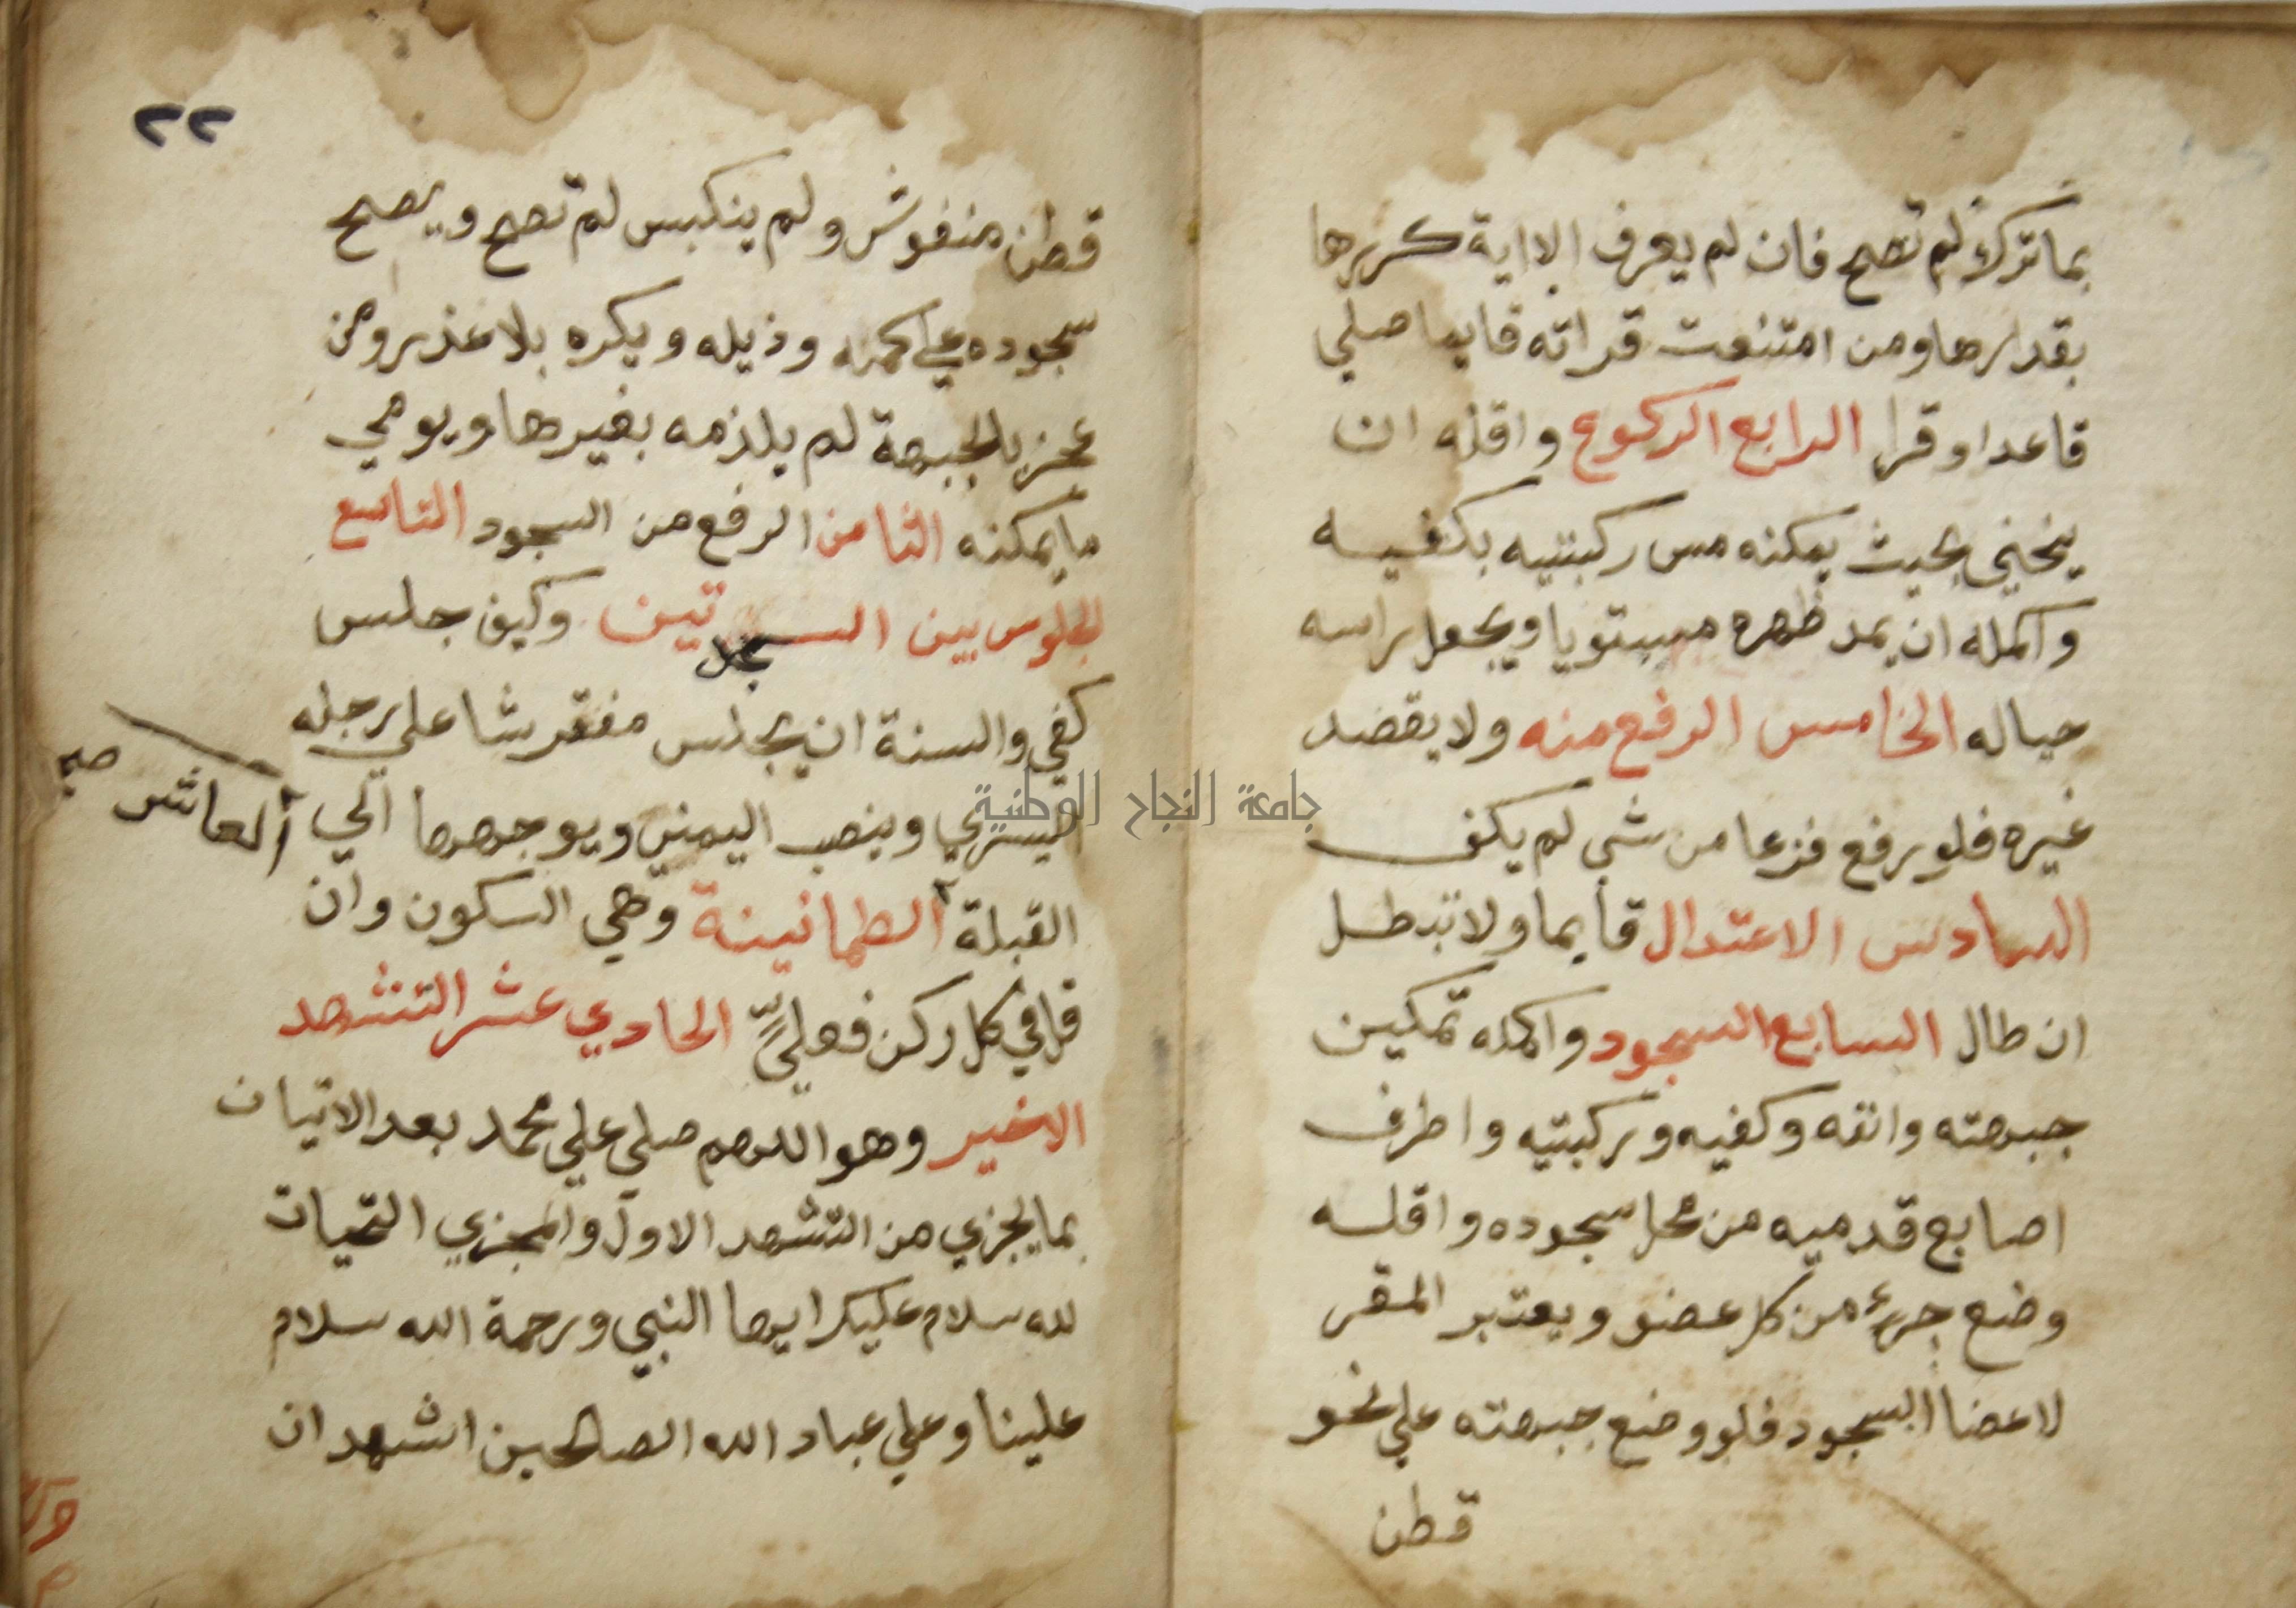 بما تركه لم تصح فان لم يعرف الا اية كررها
بقدرها ومن امتنعت قراته قايما صلي
قاعدا وقرا الرابع الركوع واقله ان
ينحني بحيث يمكنه مس ركبتيه بكفيه
واكمله ان يمد ظهره مستويا ويجعل راسه
حياله الخامس الرفع منه ولا يقصد
غيره فلو رفع فزعا من شي لم يكف
السادس الاعتدال قايما ولا تبطل
ان طال السابع السجود واكمله تمكين
جبهته وانفه وكفيه وركبتيه واطرف
اصابع قدميه من محل سجوده واقله
وضع جزء من كل عضو ويعتبر المقر
لاعضا السجود فلو وضع جبهته علي نحو
قطن
٢٢
قطن منفوش ولم ينكبس لم تصح ويصح
سجوده علي كمه وذيله ويكره بلا عذر ومن
عجز بالجبهة لم يلزمه بغيرها ويومي
ما يمكنه الثامن الرفع من السجود التاسع
الجلوس بين السجدتين وكيف جلس
كفي والسنة ان يجلس مفترشا علي رجله
اليسري وينصب اليمني ويوجهها الي
العاشر صح
القبلة الطمانينة وهي السكون وان
قل في كل ركن فعلي الحادي عشر التشهد
الاخير وهو اللهم صلي علي محمد بعد الاتيان
بما يجزي من التشهد الاول والمجزي التحيات
لله سلام عليك ايها النبي ورحمة الله سلام
علينا وعلي عباد الله الصالحين اشهد ان
جامعة النجاح الوطنية